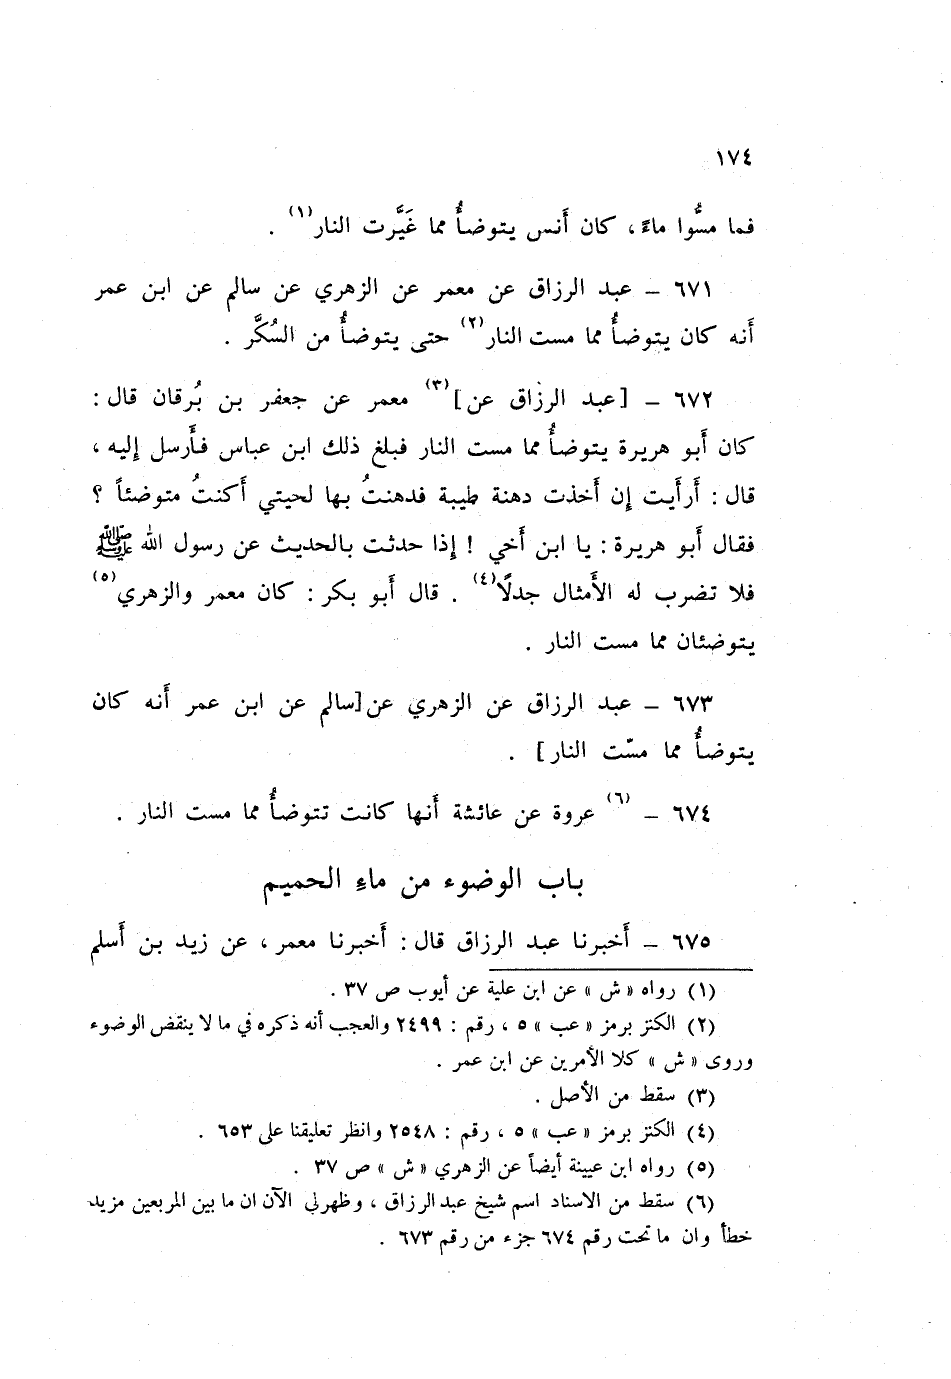 ١٧٤
فما مسُّوا ماءً ، كان أَنس يتوضأُ مما غَيَّرت النار(١) .
٦٧١ – عبد الرزاق عن معمر عن الزهري عن سالم عن ابن عمر
أَنه كان يتوضأُ مما مست النار(٢) حتى يتوضأُ من السُكَّر .
٦٧٢ – [عبد الرزاق عن](٣) معمر عن جعفر بن بُرقان قال :
كان أَبو هريرة يتوضأُ مما مست النار فبلغ ذلك ابن عباس فأَرسل إليه ،
قال : أَرأَيت إن أَخذت دهنة طيبة فدهنتُ بها لحيتي أَكنتُ متوضئاً ؟
فقال أَبو هريرة : يا ابن أَخي ! إذا حدثت بالحديث عن رسول الله ﷺ
فلا تضرب له الأَمثال جدلًا(٤) . قال أَبو بكر : كان معمر والزهري(٥)
يتوضئان مما مست النار .
٦٧٣ – عبد الرزاق عن الزهري عن[سالم عن ابن عمر أَنه كان
يتوضأُ مما مسّت النار] .
٦٧٤ – (٦) عروة عن عائشة أَنها كانت تتوضأُ مما مست النار .
باب الوضوء من ماءِ الحميم
٦٧٥ – أَخبرنا عبد الرزاق قال : أَخبرنا معمر ، عن زيد بن أَسلم
(١) رواه « ش » عن ابن علية عن أيوب ص ٣٧ .
(٢) الكنز برمز « عب » ٥ ، رقم : ٢٤٩٩ والعجب أنه ذكره في ما لا ينقض الوضوء
وروى « ش » كلا الأمرين عن ابن عمر .
(٣) سقط من الأصل .
(٤) الكنز برمز « عب » ٥ ، رقم : ٢٥٤٨ وانظر تعليقنا على ٦٥٣ .
(٥) رواه ابن عيينة أيضاً عن الزهري « ش » ص ٣٧ .
(٦) سقط من الاسناد اسم شيخ عبد الرزاق ، وظهر لي الآن ان ما بين المربعين مزيد
خطأ وان ما تحت رقم ٦٧٤ جزء من رقم ٦٧٣ .